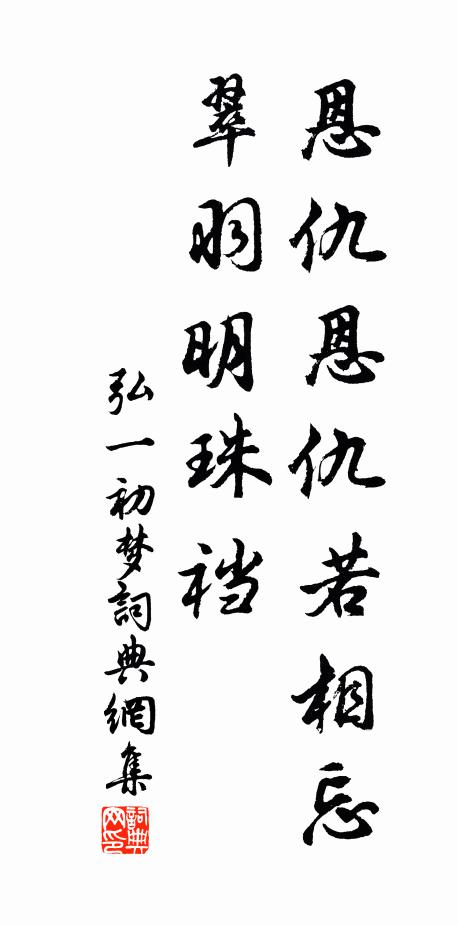 恩仇恩仇若相忘
翠羽明珠裆
弘一初梦詞典網集
詞典网印